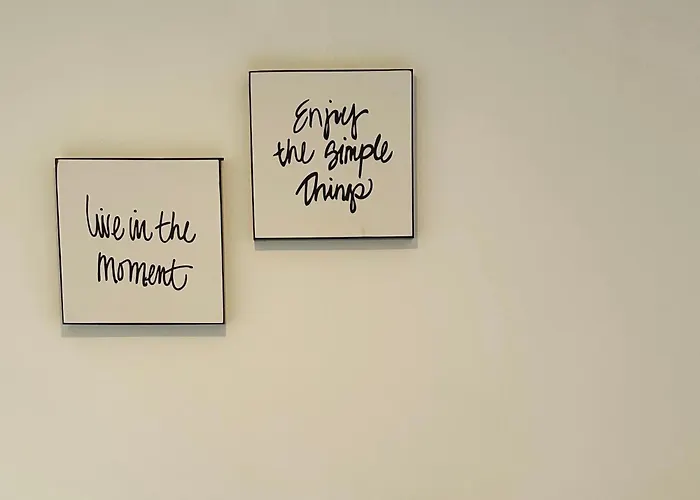 Live in the
Moment
Enjoy
the Simple
Things